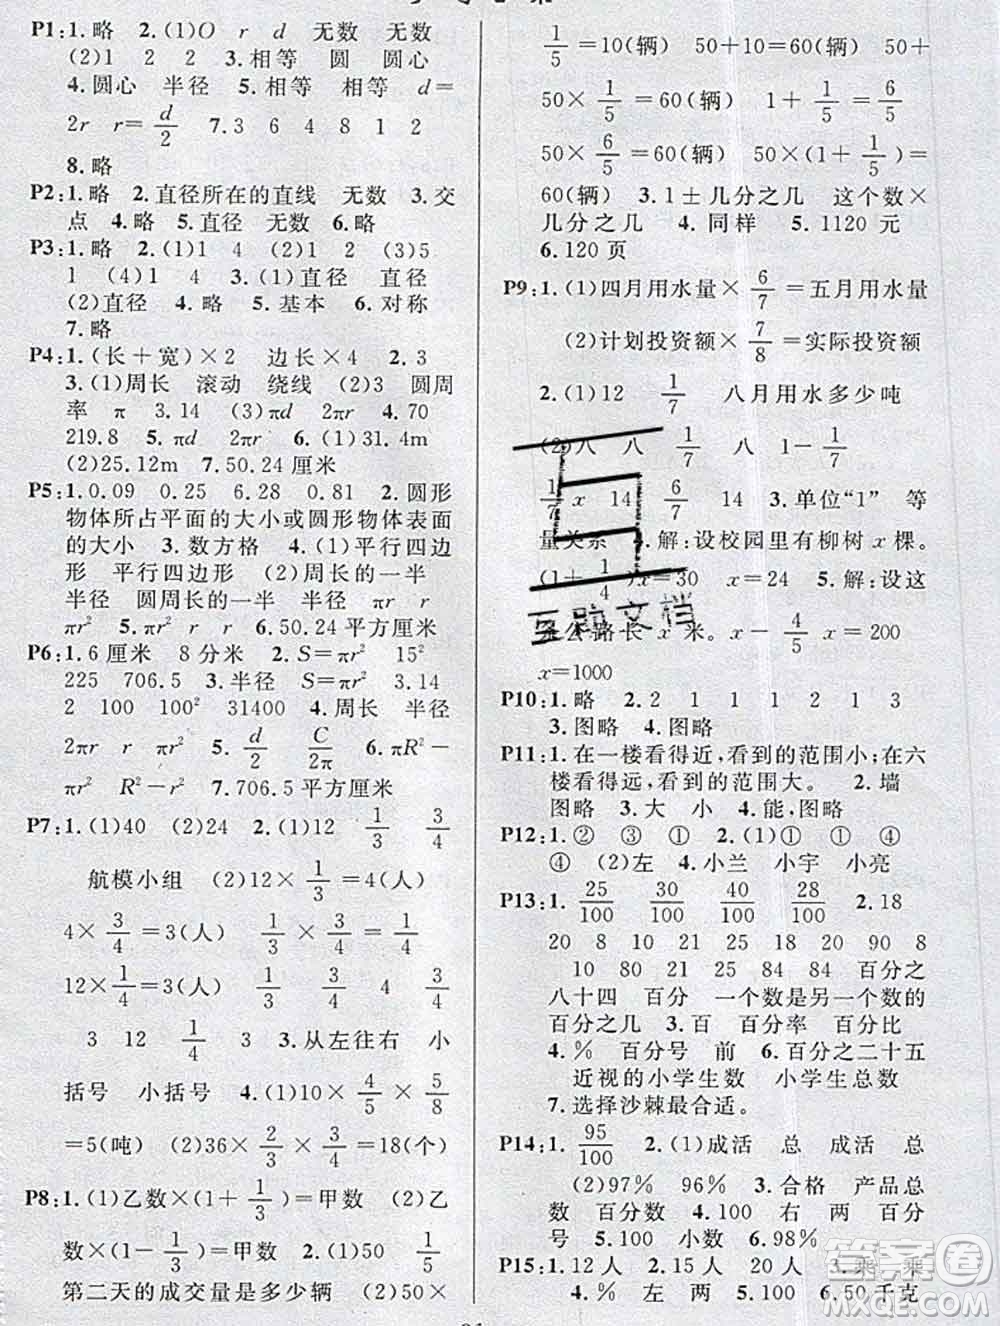 P1:1.略 2.(1)O r d 无数 无数
(2)1 2 2 3.相等 圆 圆心
4.圆心 半径 5.相等 相等 d=
2r r=d/2 7.3 6 4 8 12
8.略
P2:1.略 2.直径所在的直线 无数 3.交
点 4.略 5.直径 无数 6.略
P3:1.略 2.(1)1 4 (2)1 (3)5
1 (4)4 3.(1)直径 直径
(2)直径 4.略 5.基本 6.对称
7.略
P4:1.(长+宽)×2 边长×4 2.3
3.(1)周长 滚动 绕线 (2)3 圆周
率 π 3.14 (3)πd 2πr 4.70
219.8 5.πd 2πr 6.(1)31.4m
(2)25.12m 7.50.24厘米
P5:1.0.09 0.25 6.28 0.81 2.圆形
物体所占平面的大小或圆形物体表面
的大小 3.数方格 4.(1)平行四边
形 平行四边形 (2)周长的一半
半径 圆周长的一半 半径 πr r
πr² 5.(2)r r 6.50.24平方厘米
P6:1.6厘米 8分米 2.S=πr² 15²
225 706.5 3.半径 S=πr² 3.14
2 100 100² 31400 4.周长 半径
2πr r πr² 5.d/2 C/2π 6.πR²-
πr² R²-r² 7.706.5平方厘米
P7:1.(1)40 (2)24 2.(1)12 1/3 3/4
航模小组 (2)12×1/3=4(人)
4×3/4=3(人) 1/3×3/4 1/4
12×1/4=3(人) 1/3 3/4 1/4
3 12 1/4 3.从左往右 小
括号 小括号 4.(1)10×4/5×5/8
=5(吨) (2)36×2/3×3/4=18(个)
P8:1.(1)乙数×(1+1/3)=甲数 (2)乙
数×(1-1/3)=甲数 2.(1)50 1/5
第二天的成交量是多少辆 (2)50×
1/5=10(辆) 50+10=60(辆) 50+
50×1/5=60(辆) 1+1/5=6/5
50×6/5=60(辆) 50×(1+1/5)=
60(辆) 3.1±几分之几 这个数×
几分之几 4.同样 5.1120元
6.120页
P9:1.(1)四月用水量×6/7=五月用水量
(2)计划投资额×7/8=实际投资额
2.(1)12 1/7 八月用水多少吨
(2)八 八 1/7 八 1-1/7
1/7x 14 6/7 14 3.单位“1” 等
量关系 4.解:设校园里有柳树x棵。
(1+1/4)x=30 x=24 5.解:设这
条公路长x米。x-4/5x=200
x=1000
P10:1.略 2.2 1 1 1 2 1 3
3.图略 4.图略
P11:1.在一楼看得近,看到的范围小;在六
楼看得远,看到的范围大。 2.墙
图略 3.大 小 4.能,图略
P12:1.② ③ ① 2.(1)① ① ④
④ (2)左 4.小兰 小宇 小亮
P13:1.25/100 30/100 40/100 28/100 2.18
20 8 9 21 18 20 90 8
10 80 230 75 84 百分之
八十四 百分 一个数是另一个数的
百分之几 3.百 百分率 百分比
4.% 百分号 前 6.百分之二十五
近视的小学生数 小学生总数
7.选择沙棘最合适。
P14:1.95/100 2.(1)成活 总 成活 总
(2)97% 96% 3.合格 产品总
数 百分数 4.100 右 两 百分
号 5.100 小数 6.98%
P15:1.12人 2.15人 20人 3.乘 乘
4.% 100 两 5.100 6.50千克
豆题文档
答案圈